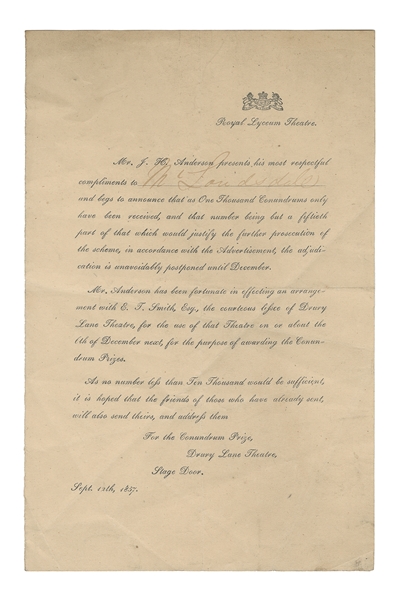 Royal Lyceum Theatre.
Mr. J. H. Anderson presents his most respectful
compliments to Mr
and begs to announce that as One Thousand Conundrums only
have been received, and that number being but a fiftieth
part of that which would justify the further prosecution of
the scheme, in accordance with the Advertisement, the adjudi-
cation is unavoidably postponed until December.
Mr. Anderson has been fortunate in effecting an arrange-
ment with E. T. Smith, Esq., the courteous lessee of Drury
Lane Theatre, for the use of that Theatre on or about the
6th of December next, for the purpose of awarding the Conun-
drum Prizes.
As no number less than Ten Thousand would be sufficient,
it is hoped that the friends of those who have already sent,
will also send theirs, and address them
For the Conundrum Prize,
Drury Lane Theatre,
Stage Door.
Sept. 1857.